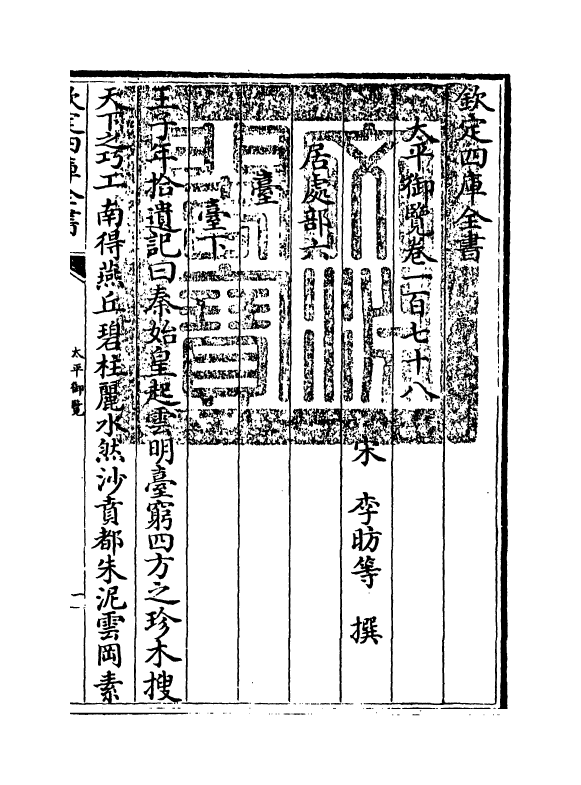 欽定四庫全書
太平御覽卷一百七十八
宋 李昉等 撰
居處部六
臺
臺下
王子年拾遺記曰秦始皇起雲明臺窮四方之珍木搜
天下之巧工南得燕丘碧柱麗水然沙賁都朱泥雲岡素
欽定四庫全書
太平御覽
一
文淵閣寶